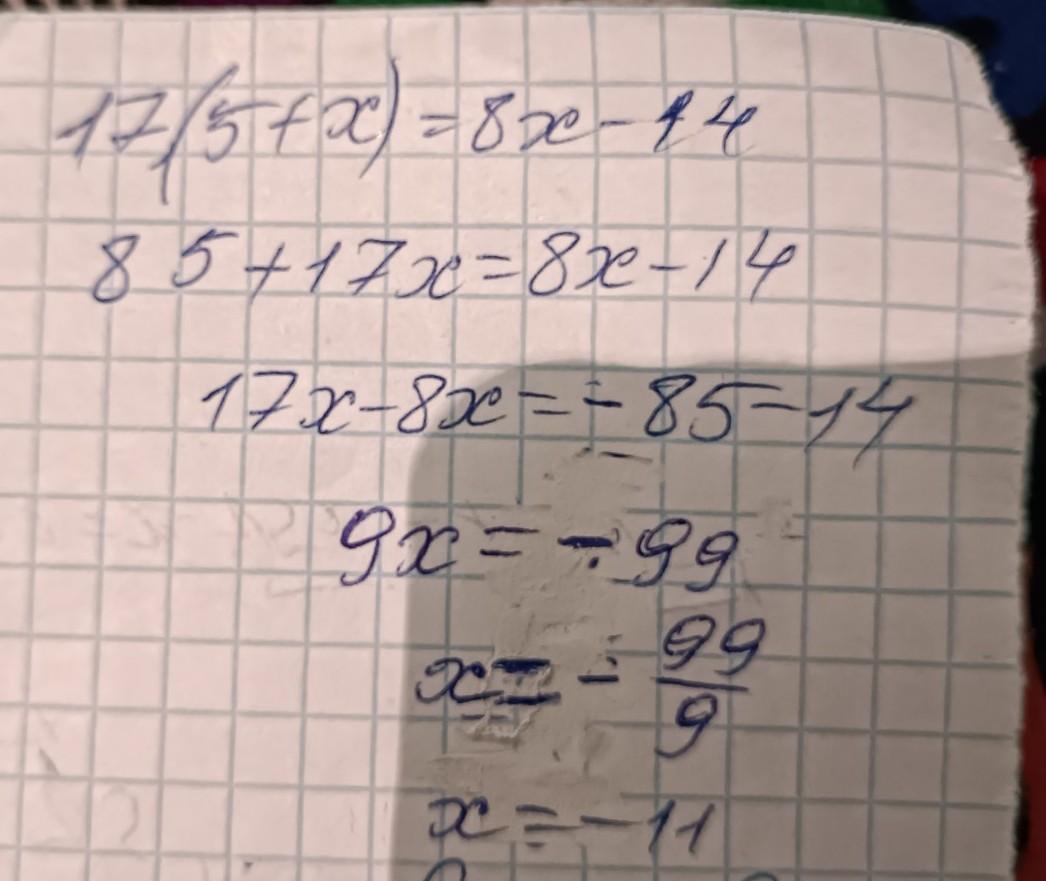 17(5+x)=8x-14
85+17x=8x-14
17x-8x=-85-14
9x=-99
x=-99/9
x=-11